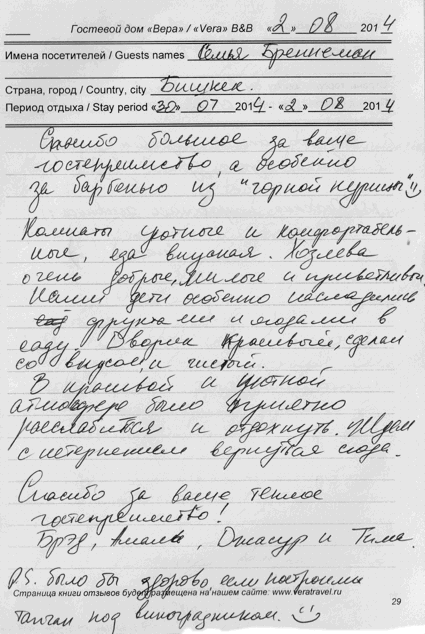 Гостевой дом «Вера» / «Vera» B&B «2» 08 2014
Имена посетителей / Guests names Семья Бреннеман
Страна, город / Country, city Бишкек.
Период отдыха / Stay period «30» 07 2014 - «2» 08 2014
Спасибо большое за ваше
гостеприимство, а особенно
за барбекью из "горной курицы"
Комнаты уютные и комфортабель-
ные, еда вкусная. Хозяева
очень добрые, милые и приветливы.
Наши дети особенно насладились
фруктами и ягодами в
саду. Дворик красивый, сделан
со вкусом, и чистый.
В красивой и уютной
атмосфере было приятно
расслабится и отдохнуть. Ждем
с нетерпением вернутся сюда.
Спасибо за ваше теплое
гостеприимство!
Брэд, Джасур и Тима.
P.S. было бы здорово, если построили
Страница книги отзывов будет размещена на нашем сайте: www.veratravel.ru
29
тапчан под виноградником.